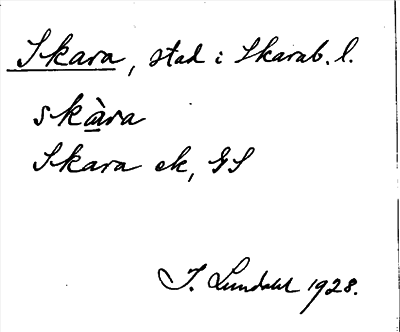 Skara, stad i Skarab. l.
skàra
Skara ek, GS
I. Lundahl 1928.